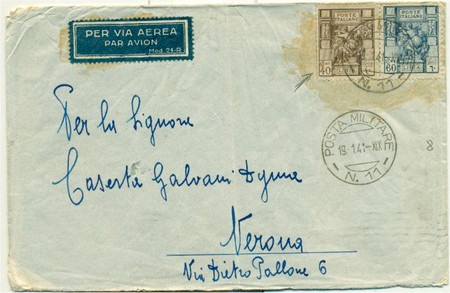 PER VIA AEREA
PAR AVION
Mod. 21-R
POSTE
ITALIANE
40
POSTE
ITALIANE
60
N. 11
POSTA MILITARE
19.1.41-XIX
- N. 11 -
8
Per la Signora
Caserta Galvani
Verona
Via Dietro Pallone 6